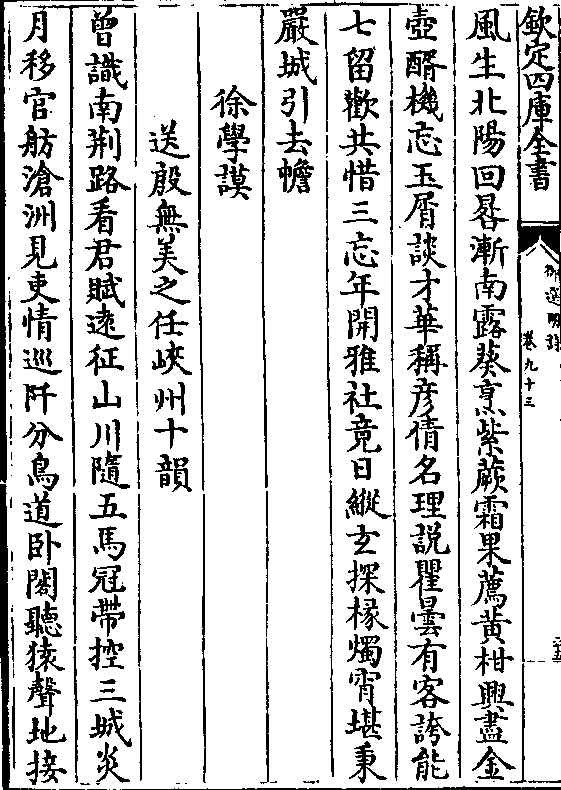 欽定四庫全書
御選明詩
卷九十三
風生北陽回晷漸南露葵烹紫蕨霜果薦黃柑興盡金
壺醑機忘玉屑談才華稱彦倩名理説瞿曇有客誇能
七留歡共惜三忘年開雅社竟日縱玄探椽燭宵堪秉
嚴城引去幨
徐學謨
送殷無美之任峽州十韻
曾識南荆路看君賦遠征山川隨五馬冠帶控三城炎
月移官舫滄洲見吏情巡阡分鳥道卧閣聽猿聲地接